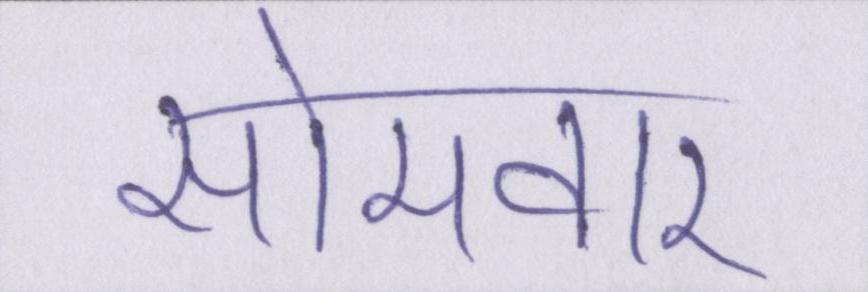 सोमवार